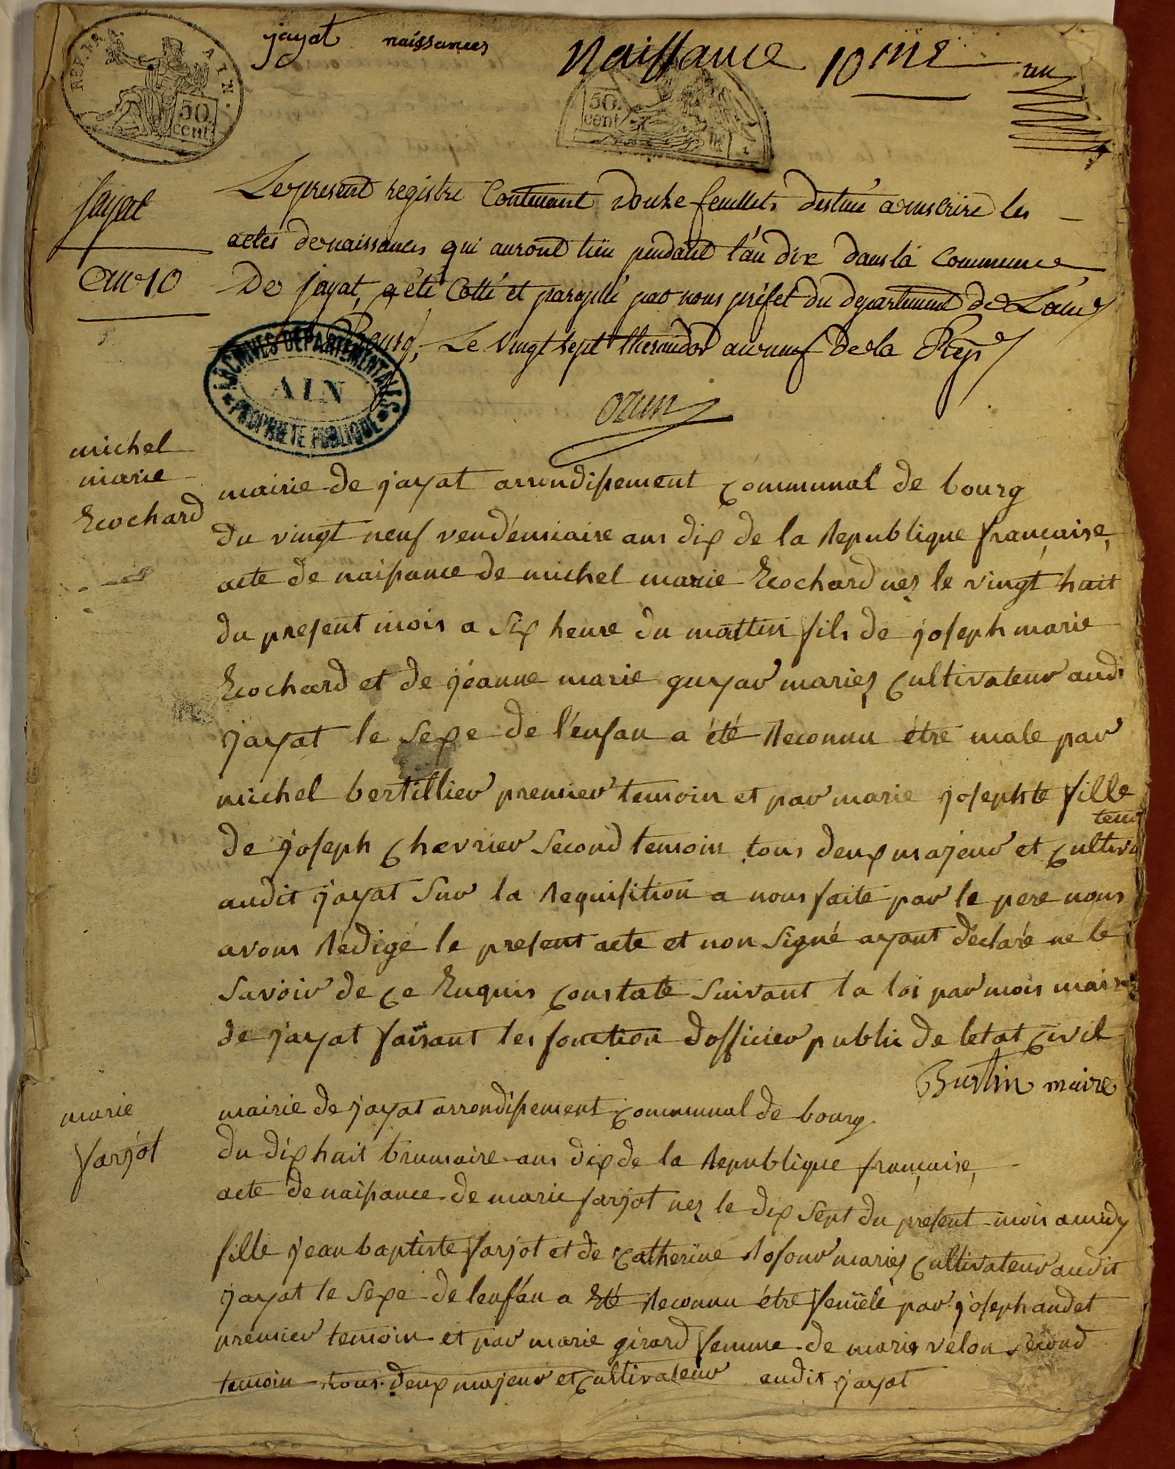 jayat naissances
Naissance 10me
REP. FRA. AIN.
50. cent.
50. cent
Jayat
an 10
Le present registre Contenant douze feuillets destiné a inscrire les
actes de naissances qui auront lieu pendant l'an dix dans la Commune
De Jayat, a été Cotté et paraphé par nous préfet du departement de L'ain
Bourg, Le vingt sept thermidor an neuf de la Rep
ARCHIVES DEPARTEMENTALES
AIN
PROPRIETE PUBLIQUE
ozun
michel
marie
Ecochard
mairie de jayat arrondissement communal de bourg
du vingt neuf vendémiaire ans dix de la Republique française,
acte de naissance de michel marie Ecochard nez le vingt huit
du present mois a six heure du mattin fils de joseph marie
Ecochard et de jéanne marie guyar mariez cultivateur audi
jayat le sexe de l'enfan a été Reconnu étre male par
michel bertillier premier temoin et par marie josephte fille
de joseph chevrier second temoin tous deux majeur et cultiva
teur
audit jayat sur la Requisition a nous faite par le pere nous
avons Rédigé le present acte et non signé ayant déclaré ne le
savoir de ce Enquis constaté suivant la loi par mois maire
de jayat faisant les fonction d'officier public de letat civil
Burtin maire
marie
farjot
mairie de jayat arrondissement communal de bourg
du dix huit brumaire ans dix de la Republique française,
acte de naissance de marie farjot nez le dix sept du present mois a midy
fille jean baptiste farjot et de catherine Rosour mariez cultivateur audit
jayat le sexe de lenfan a Eté Reconnu étre femele par joseph audet
premier temoin et par marie girard femme de marie velon second
temoin tous deux majeur et cultivateur audit jayat